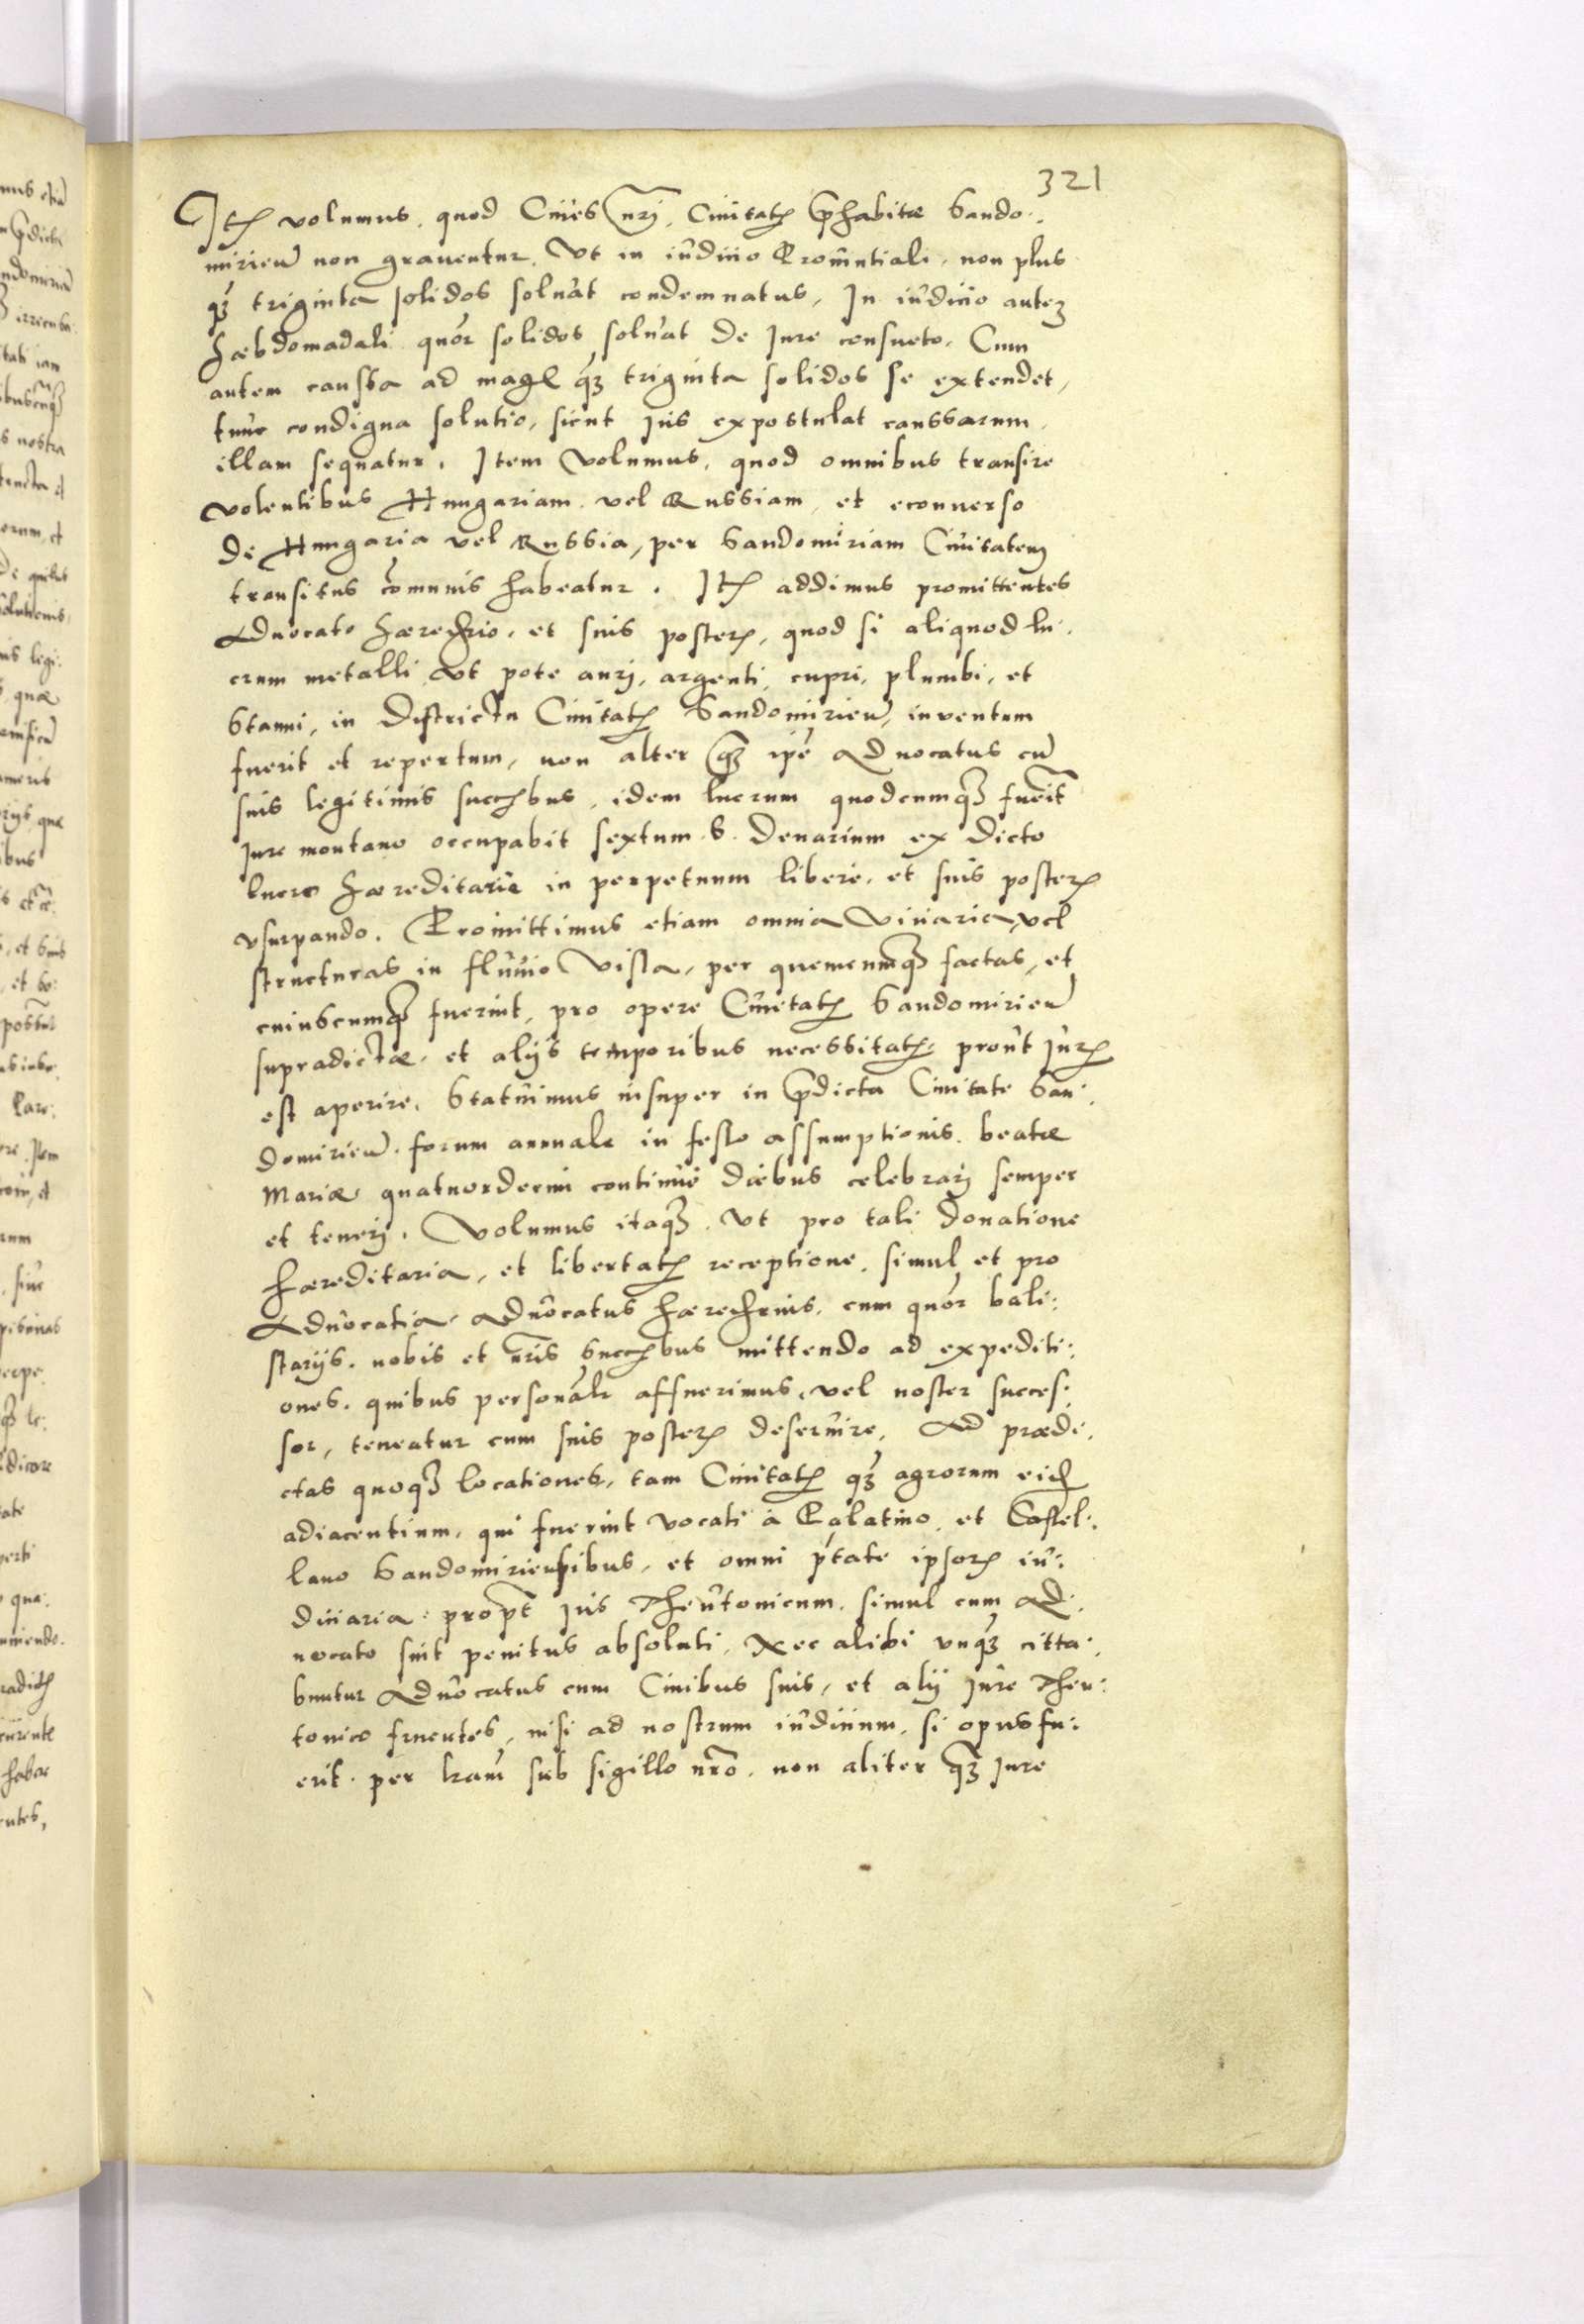 321
Itē volumus, quod Ciues nr̄j, Ciuitatis p̄habitæ Sando:
mirien̄ non grauentur. Vt in iudicio Prouintiali, non plus
q̄ triginta solidos soluat condemnatus, In iudicio autē
hæbdomadali quōr solidos soluat de Iure consueto. Cum
autem caussa ad maḡ q̄ triginta solidos se extendet,
tunc condigna solutio, sicut Ius expostulat caussarum,
illam sequatur. Item volumus, quod omnibus transire
volentibus Hungariam vel Russiam, et econuerso
de Hungaria vel Russia, per Sandomiriam Ciuitatem
transitus cōmunis habeatur. Itē addimus promittentes
Aduocato hæred̄rio, et suis posteris, quod si aliquod lu:
crum metalli, vt pote aurj, argenti, cupri, plumbi, et
Stanni, in districtu Ciuitatis Sandomirien̄, inventum
fuerit et repertum, non alter q̄ ip̄e Aduocatus cū
suis legitimis succ̄bus, idem lucrum quodcumq̄ fuerit
Iure montano occupabit sextum .6. denarium ex dicto
lucro hæreditarie in perpetuum libere, et suis posteris
vsurpando. Promittimus etiam omnia viuaria, vel
structuras in fluuio Visla, per quemcumq̄ factas, et
cuiuscumq̄ fuerint, pro opere Ciuitatis Sandomirien̄
supradictæ, et alijs temporibus necessitatis, prout Iuris
est aperire. Statuimus insuper in p̄dicta Ciuitate San:
domirien̄. forum annale in festo assumptionis beatæ
Mariæ quatuordecim continue diebus celebrarj semper
et tenerj. Volumus itaq̄, vt pro tali donatione
hæreditaria, et libertatis receptione, simul et pro
Aduocatia, Aduocatus hæred̄rius, cum quōr bali:
starijs, nobis et nr̄is succ̄bus mittendo ad expediti:
ones, quibus personalr̄ affuerimus, vel noster succes:
sor, teneatur cum suis posteris deseruire. Ad prædi:
ctas quoq̄ locationes, tam Ciuitatis q̄ agrorum eid̄
adiacentium, qui fuerint vocati à Palatino, et Castel:
lano Sandomiriensibus, et omni p̄tate ipsorū iu:
diciaria, propt̄ Ius Theutonicum, simul cum Ad:
uocato sint penitus absoluti. Nec alibi vnq̄ citta:
buntur Aduocatus cum Ciuibus suis, et alij Iure Theu:
tonico fruentes, nisi ad nostrum iudicium, si opus fu:
erit, per lr̄am sub sigillo nr̄o, non aliter q̄ Iure